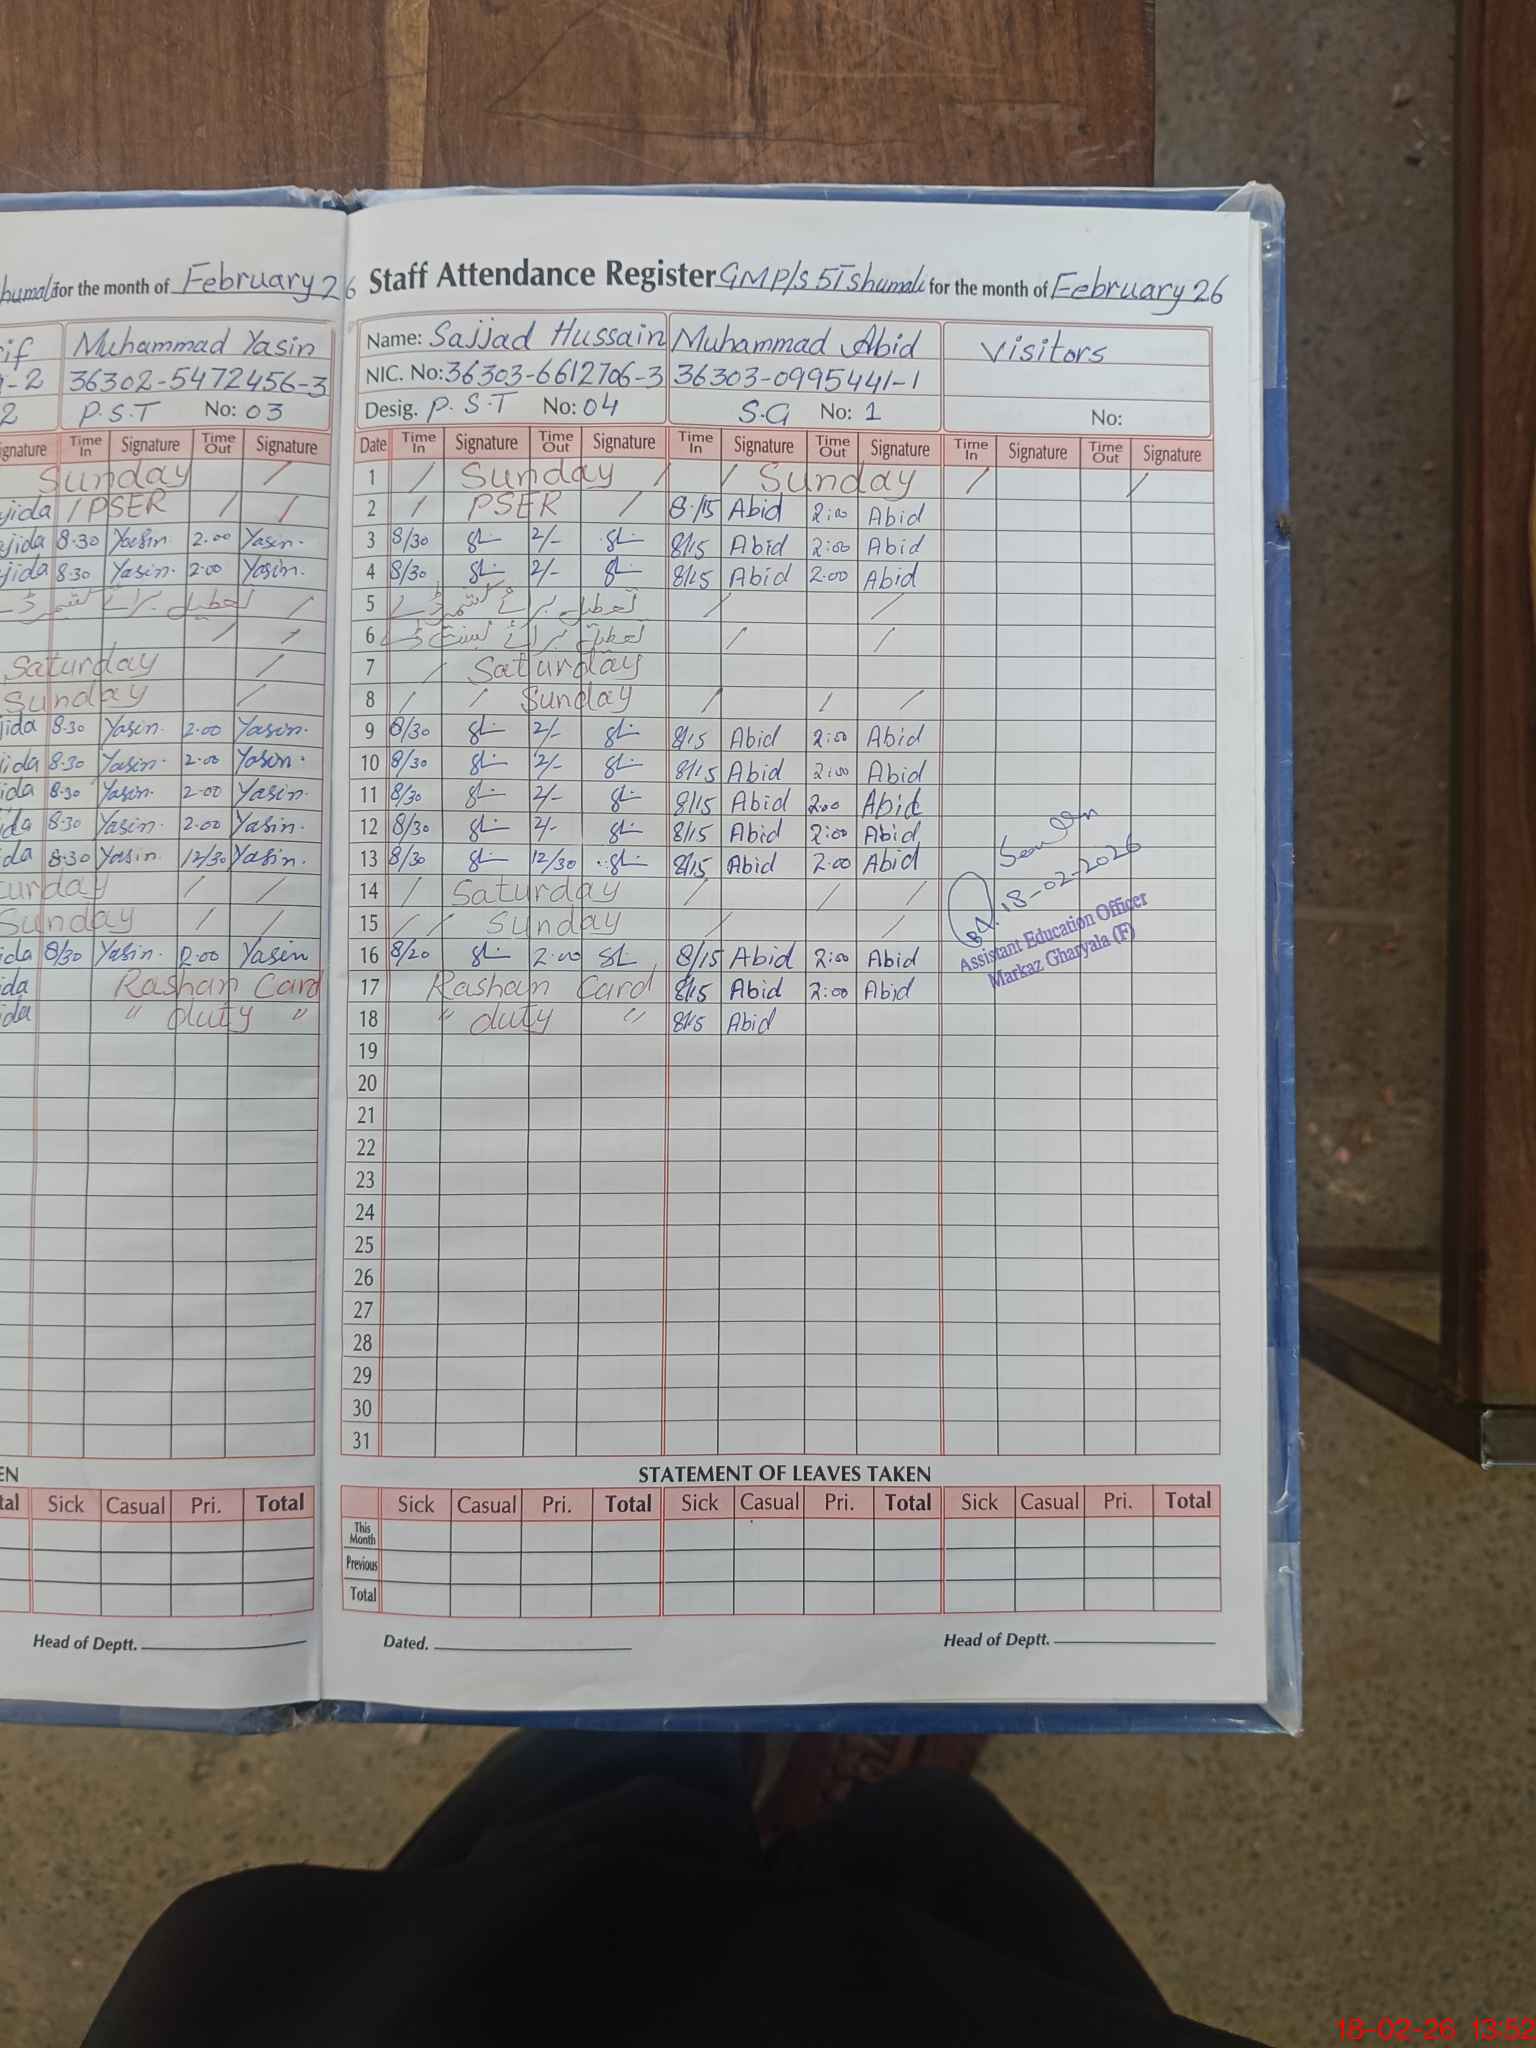 for the month of February 26
Muhammad Yasin
36302-5472456-3
P.S.T No: 03
Time In Signature Time Out Signature
Sunday /
jida / PSER / /
jida 8.30 Yasin. 2.00 Yasin.
jida 8.30 Yasin. 2.00 Yasin.
تعطیل برائے کشمیر ڈے /
/ /
Saturday /
Sunday /
jida 8.30 Yasin. 2.00 Yasin.
jida 8.30 Yasin. 2.00 Yasin.
ida 8.30 Yasin. 2.00 Yasin.
da 8.30 Yasin. 2.00 Yasin.
da 8.30 Yasin. 12/30 Yasin.
turday / /
Sunday / /
ida 8/30 Yasin. 2.00 Yasin
ida Rashan Card
da " duty "
Sick Casual Pri. Total
Head of Deptt.
Staff Attendance Register GMP/s 5T shumali for the month of February 26
Name: Sajjad Hussain Muhammad Abid Visitors
NIC. No: 36303-6612706-3 36303-0995441-1
Desig. P.S.T No: 04 S.G No: 1 No:
Date Time In Signature Time Out Signature Time In Signature Time Out Signature Time In Signature Time Out Signature
1 / Sunday / / Sunday / /
2 / PSER / 8/15 Abid 2:00 Abid
3 8/30 2/- 8/15 Abid 2:00 Abid
4 8/30 2/- 8/15 Abid 2.00 Abid
5 تعطیل برائے کشمیر ڈے / /
6 تعطیل برائے بسنت ڈے / /
7 / Saturday
8 / / Sunday / / /
9 8/30 2/- 8/15 Abid 2:00 Abid
10 8/30 2/- 8/15 Abid 2:00 Abid
11 8/30 2/- 8/15 Abid 2.00 Abid
12 8/30 2/- 8/15 Abid 2:00 Abid
13 8/30 12/30 8/15 Abid 2.00 Abid
14 / Saturday / / /
15 / / Sunday / /
16 8/20 2.00 8/15 Abid 2:00 Abid
17 Rashan Card 8/15 Abid 2:00 Abid
18 " duty " 8/15 Abid
18-02-2026
Assistant Education Officer
Markaz Gharyala (F)
19
20
21
22
23
24
25
26
27
28
29
30
31
STATEMENT OF LEAVES TAKEN
Sick Casual Pri. Total Sick Casual Pri. Total Sick Casual Pri. Total
This Month
Previous
Total
Dated. Head of Deptt.
18-02-26 13:52